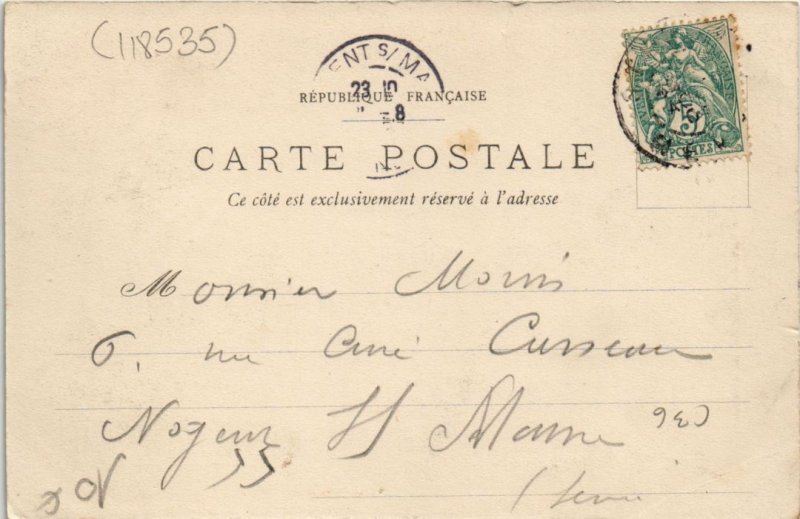 (118535)
ENT S/MA
23 10
8
RÉPUBLIQUE FRANÇAISE
CARTE POSTALE
Ce côté est exclusivement réservé à l'adresse
5
POSTES
Monsieur
6, rue Curé
Nogent S/ Marne
(Seine